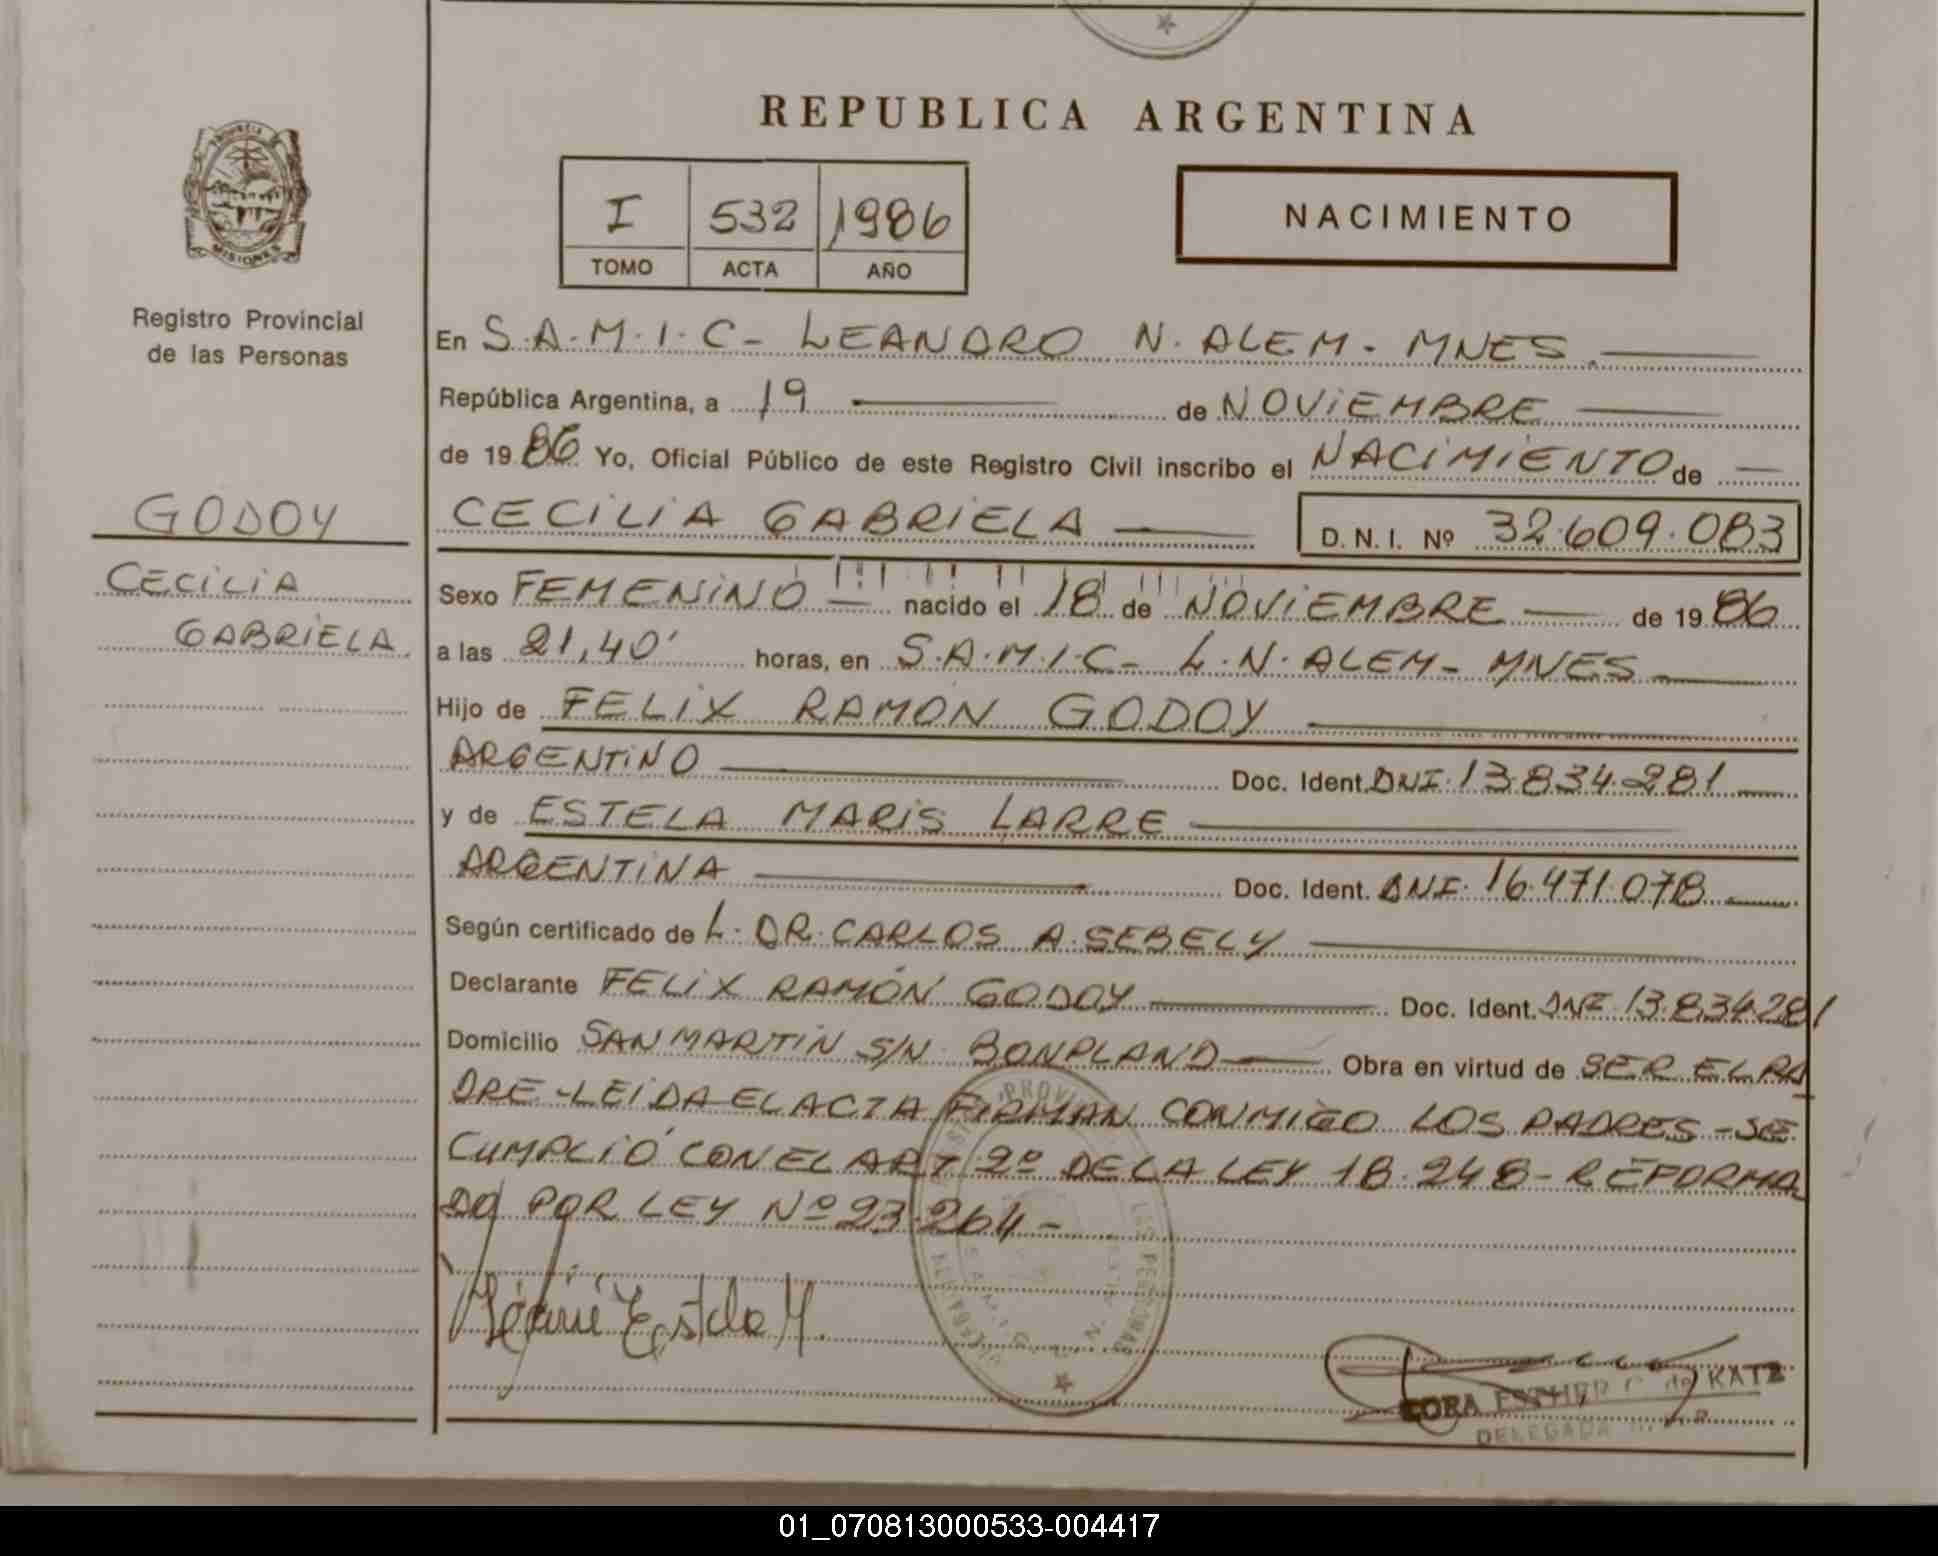 REPUBLICA ARGENTINA
PROVINCIA DE
MISIONES
Registro Provincial
de las Personas
I 532 1986
TOMO ACTA AÑO
NACIMIENTO
En S.A.M.I.C- LEANDRO N. ALEM - MNES.
República Argentina, a 19 de NOVIEMBRE
de 1986 Yo, Oficial Público de este Registro Civil inscribo el NACIMIENTO de
GODOY
CECILIA GABRIELA D.N.I. Nº 32.609.083
CECILIA
GABRIELA
Sexo FEMENINO nacido el 18 de NOVIEMBRE de 1986
a las 21,40' horas, en S.A.M.I.C- L.N. ALEM- MNES
Hijo de FELIX RAMON GODOY
ARGENTINO Doc. Ident. DNI. 13.834.281
y de ESTELA MARIS LARRE
ARGENTINA Doc. Ident. DNI. 16.471.078
Según certificado de L. DR. CARLOS A. SEBELY
Declarante FELIX RAMÓN GODOY Doc. Ident. DNI 13.834.281
Domicilio SAN MARTIN S/N. BONPLAND Obra en virtud de SER EL PA
DRE - LEIDA EL ACTA FIRMAN CONMIGO LOS PADRES - SE
CUMPLIÓ CON EL ART 2º DE LA LEY 18.248 - REFORMA
DO POR LEY Nº 23.264 -
Estela M.
CORA ESTHER de KATZ
DELEGADA
01_070813000533-004417